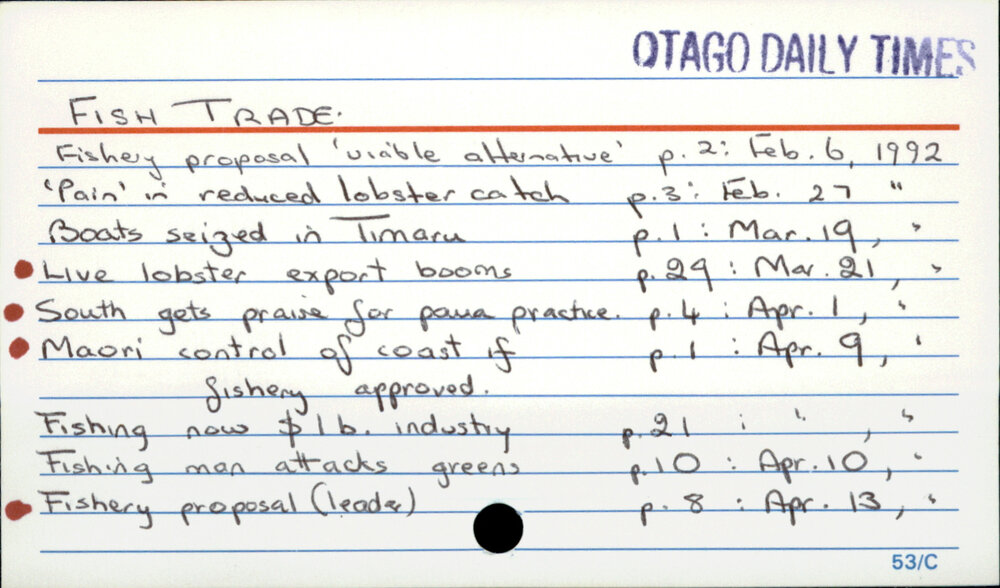 OTAGO DAILY TIMES
FISH TRADE.
Fishery proposal 'viable alternative' p. 2: Feb. 6, 1992
'Pain' in reduced lobster catch p.3: Feb. 27 "
Boats seized in Timaru p.1 : Mar. 19, "
Live lobster export booms p.29 : Mar. 21, "
South gets praise for paua practice. p.4 : Apr. 1, "
Maori control of coast if p.1 : Apr. 9, "
fishery approved.
Fishing now $1b. industry p.21 : " , "
Fishing man attacks greens p.10 : Apr. 10, "
Fishery proposal (leader) p. 8 : Apr. 13, "
53/C